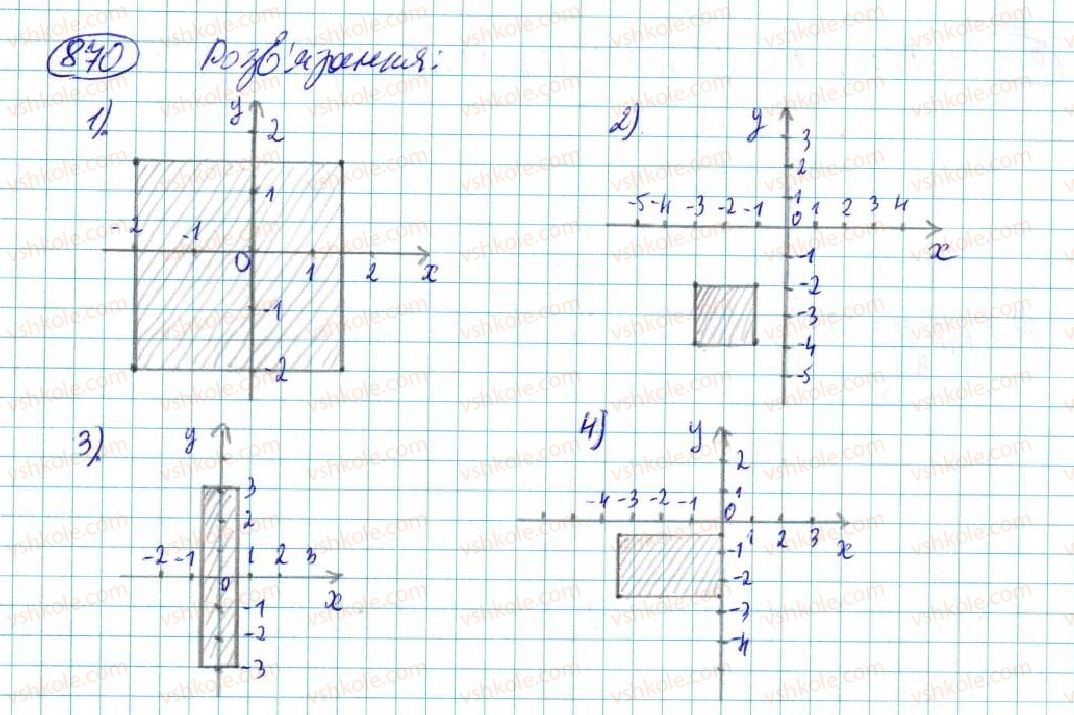 870 Розв'язання:
1).
y
2
1
-2 -1 0 1 2 x
-1
-2
2)
y
3
2
1
-5 -4 -3 -2 -1 0 1 2 3 4
x
-1
-2
-3
-4
-5
3)
y
3
2
-2 -1 1 2 3
0
x
-1
-2
-3
4)
y
2
1
-4 -3 -2 -1 0
1 2 3 x
-1
-2
-3
-4
vshkole.com